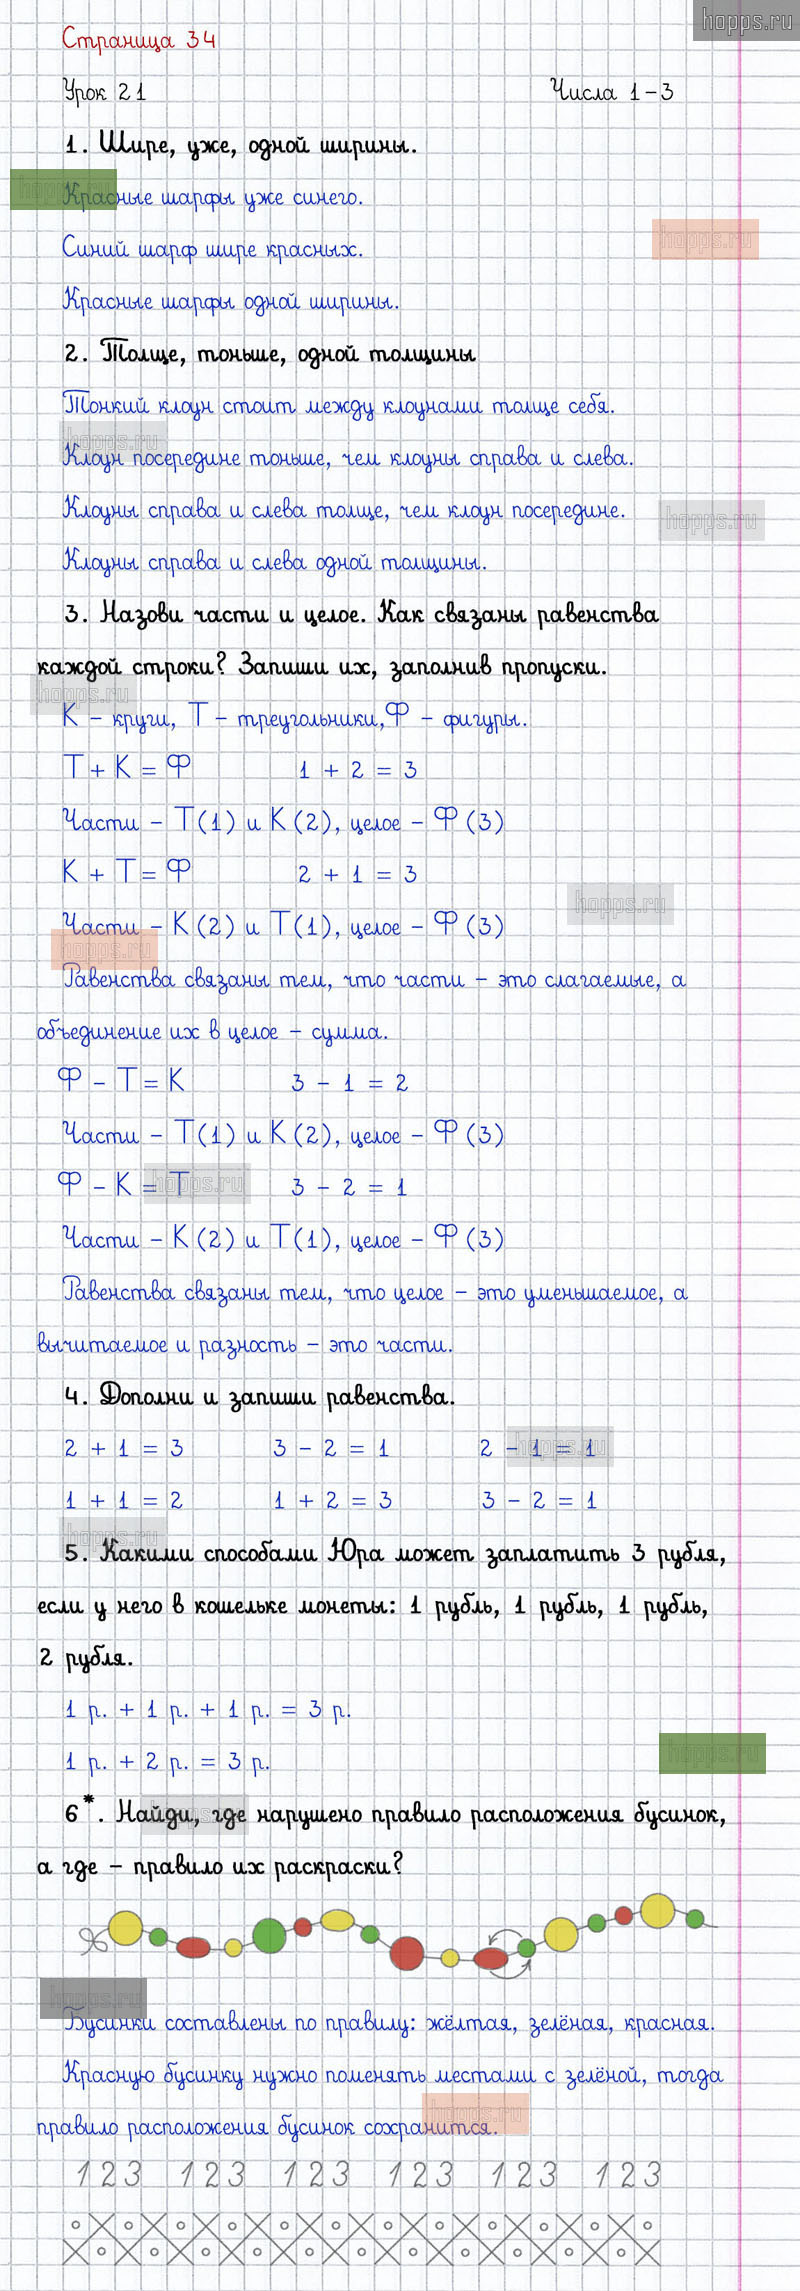 hopps.ru
Страница 34
Урок 21 Числа 1-3
1. Шире, уже, одной ширины.
Красные шарфы уже синего.
hopps.ru
hopps.ru
Синий шарф шире красных.
Красные шарфы одной ширины.
2. Толще, тоньше, одной толщины
Тонкий клоун стоит между клоунами толще себя.
hopps.ru
Клоун посередине тоньше, чем клоуны справа и слева.
Клоуны справа и слева толще, чем клоун посередине.
hopps.ru
Клоуны справа и слева одной толщины.
3. Назови части и целое. Как связаны равенства
каждой строки? Запиши их, заполнив пропуски.
hopps.ru
К - круги, Т - треугольники, Ф - фигуры.
Т + К = Ф 1 + 2 = 3
Части - Т(1) и К(2), целое - Ф(3)
К + Т = Ф 2 + 1 = 3
hopps.ru
Части - К(2) и Т(1), целое - Ф(3)
hopps.ru
Равенства связаны тем, что части - это слагаемые, а
объединение их в целое - сумма.
Ф - Т = К 3 - 1 = 2
Части - Т(1) и К(2), целое - Ф(3)
Ф - К = Т 3 - 2 = 1
hopps.ru
Части - К(2) и Т(1), целое - Ф(3)
Равенства связаны тем, что целое - это уменьшаемое, а
вычитаемое и разность - это части.
4. Дополни и запиши равенства.
2 + 1 = 3 3 - 2 = 1 2 - 1 = 1
hopps.ru
1 + 1 = 2 1 + 2 = 3 3 - 2 = 1
hopps.ru
5. Какими способами Юра может заплатить 3 рубля,
если у него в кошельке монеты: 1 рубль, 1 рубль, 1 рубль,
2 рубля.
1 р. + 1 р. + 1 р. = 3 р.
1 р. + 2 р. = 3 р.
hopps.ru
6*. Найди, где нарушено правило расположения бусинок,
hopps.ru
а где - правило их раскраски?
hopps.ru
Бусинки составлены по правилу: жёлтая, зелёная, красная.
Красную бусинку нужно поменять местами с зелёной, тогда
правило расположения бусинок сохранится.
hopps.ru
1 2 3 1 2 3 1 2 3 1 2 3 1 2 3 1 2 3